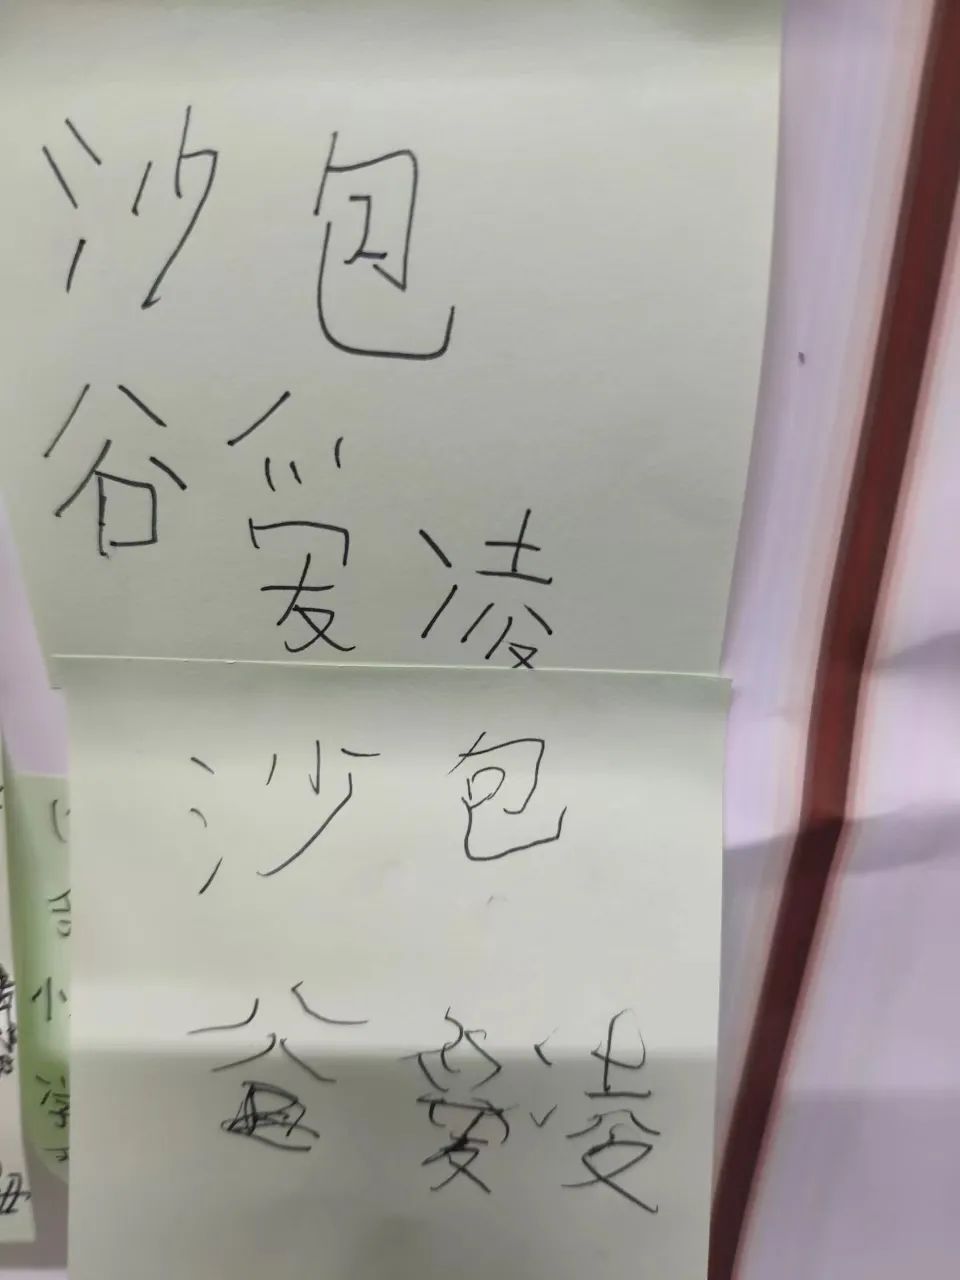 沙包
谷爱凌
沙包
谷爱凌
小